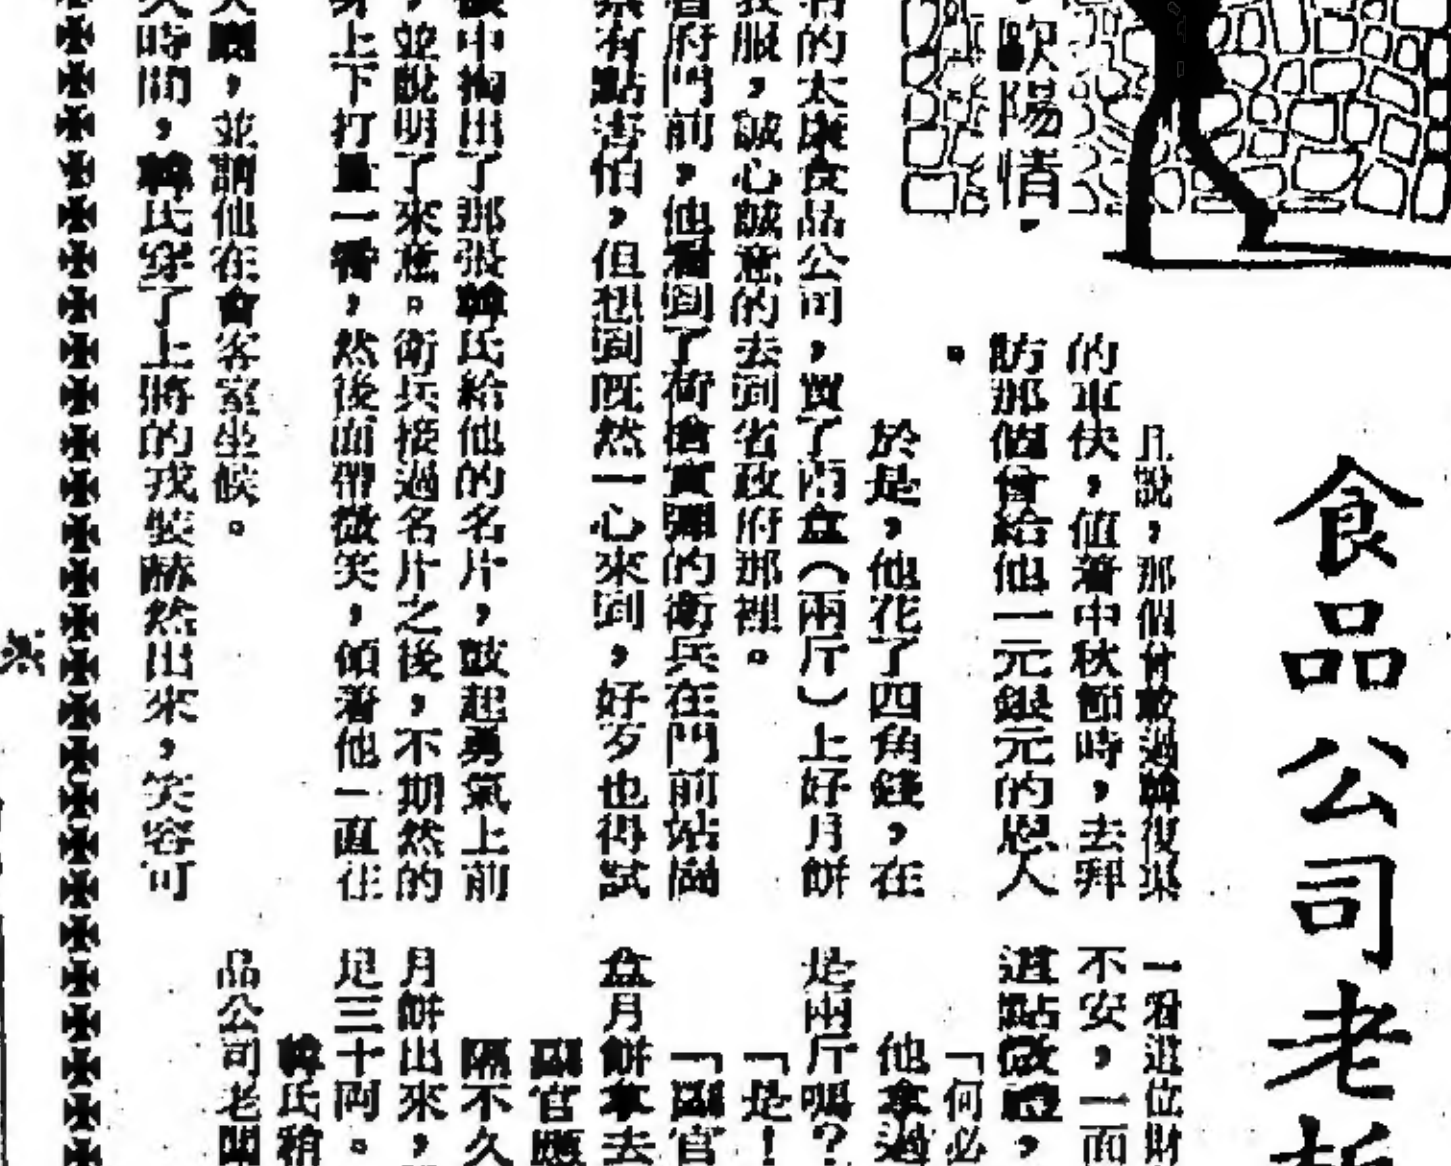 食品公司老
，歐陽情，
且說，那個曾敲過韓復榘
的車伕，值着中秋節時，去拜
訪那個曾給他一元銀元的恩人
。
於是，他花了四角錢，在
的太康食品公司，買了兩盒（兩斤）上好月餅
服，誠心誠意的去到省政府那裡。
府門前，他看到了荷槍實彈的衛兵在門前站崗
有點害怕，但想到既然一心來到，好歹也得試
中掏出了那張韓氏給他的名片，鼓起勇氣上前
，並說明了來意。衛兵接過名片之後，不期然的
上下打量一番，然後面帶微笑，領着他一直往
，並請他在會客室坐候。
時間，韓氏穿了上將的戎裝赫然出來，笑容可
一看這位財
不安，一面
這點微禮，
「何必
他拿過
是兩斤嗎？
「是！
「副官
盒月餅拿去
副官應
隔不久
月餅出來，
足三十兩。
韓氏稍
品公司老闆